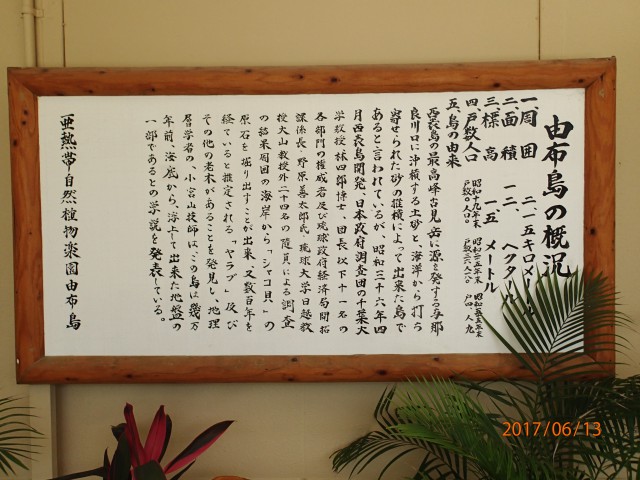 由布島の概況
一、周囲 二・一五キロメートル
二、面積 一二 ヘクタール
三、標高 一・五 メートル
四、戸数人口 昭和十九年末 戸数〇。人口〇。
五、島の由来
西表島の最高峰古見岳に源を発する与那
良川口に沖積する土砂と、海洋から打ち
寄せられた砂の推積によって出来た島で
あると言われているが、昭和三十六年四
月西表島開発、日本政府調査団の千葉大
学教授林四郎博士、団長以下十一名の
各部門の権威者及び琉球政府経済局開拓
課係長、野原善太郎氏、琉球大学日越教
授大山教授外二十四名の随員による調査
の結果周囲の海岸から「シャコ貝」の
原石を掘り出すことが出来、又数百年を
経ていると推定される「ヤラブ」及び
その他の老木があることを発見し、地理
層学者の、小宮山技師は、この島は幾万
年前、海底から、浮上して出来た地盤の
一部であるとの学説を発表している。
亜熱帯自然植物楽園由布島
2017/06/13